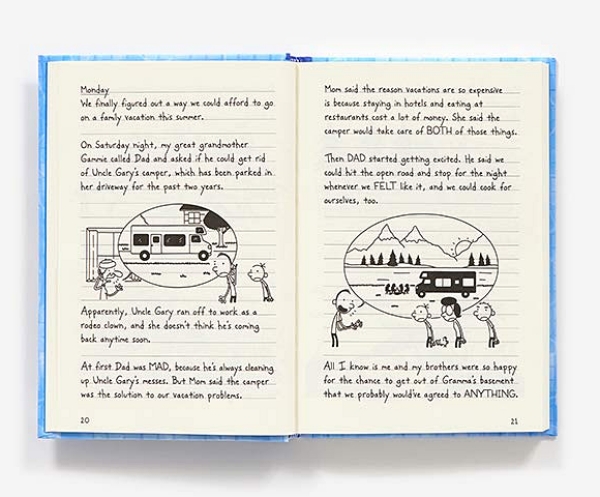 Monday
We finally figured out a way we could afford to go
on a family vacation this summer.
On Saturday night, my great grandmother
Gammie called Dad and asked if he could get rid
of Uncle Gary's camper, which has been parked in
her driveway for the past two years.
Apparently, Uncle Gary ran off to work as a
rodeo clown, and she doesn't think he's coming
back anytime soon.
At first Dad was MAD, because he's always cleaning
up Uncle Gary's messes. But Mom said the camper
was the solution to our vacation problems.
20
Mom said the reason vacations are so expensive
is because staying in hotels and eating at
restaurants cost a lot of money. She said the
camper would take care of BOTH of those things.
Then DAD started getting excited. He said we
could hit the open road and stop for the night
whenever we FELT like it, and we could cook for
ourselves, too.
All I know is me and my brothers were so happy
for the chance to get out of Gramma's basement
that we probably would've agreed to ANYTHING.
21